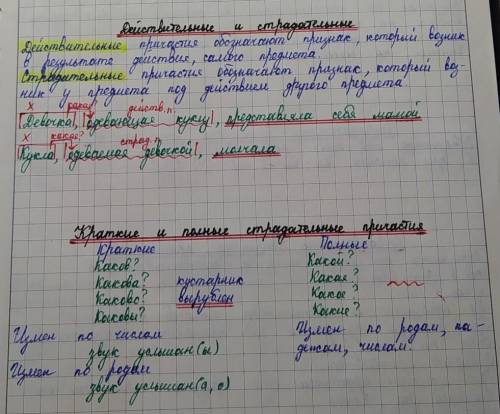 Действительные и страдательные
Действительные причастия обозначают признак, который возник
в результате действия, самого предмета.
Страдательные причастия обозначают признак, который воз-
ник у предмета под действием другого предмета.
х какая? действ.п.
Девочка, |одевающая куклу|, представляла себя мамой
х какая? страд.п.
Кукла, |одеваемая девочкой|, молчала
Краткие и полные страдательные причастия
Краткие Полные
Каков? Какой?
Какова? кустарник Какая?
Каково? вырублен Какое?
Каковы? Какие?
Измен по числам Измен по родам, па-
звук услышан(ы) дежам, числам.
Измен по родам
звук услышан(а, о)